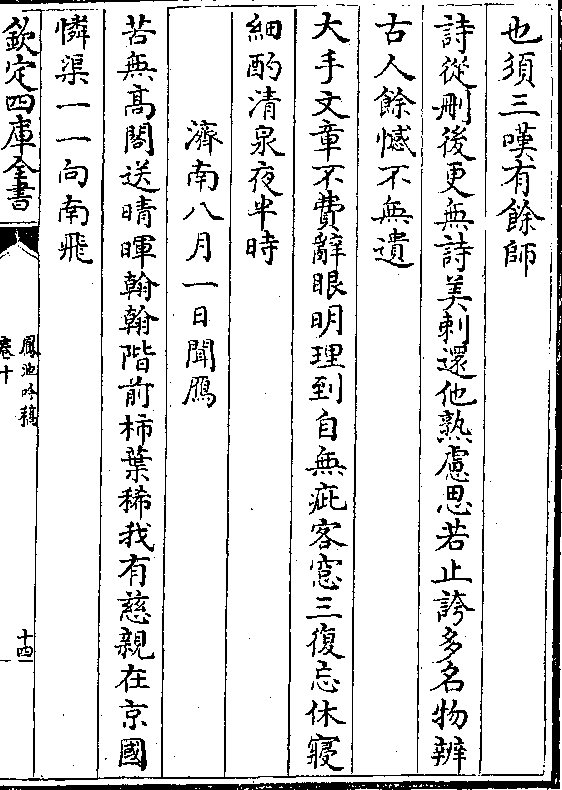 也須三嘆有餘師
詩從刪後更無詩美刺還他熟慮思若止誇多名物辨
古人餘憾不無遺
大手文章不費辭眼明理到自無疵客窓三復忘休寢
細酌清泉夜半時
濟南八月一日聞鴈
苦無高閣送晴暉翰翰階前柿葉稀我有慈親在京國
憐渠一一向南飛
欽定四庫全書
鳳池吟稿
卷十
十四